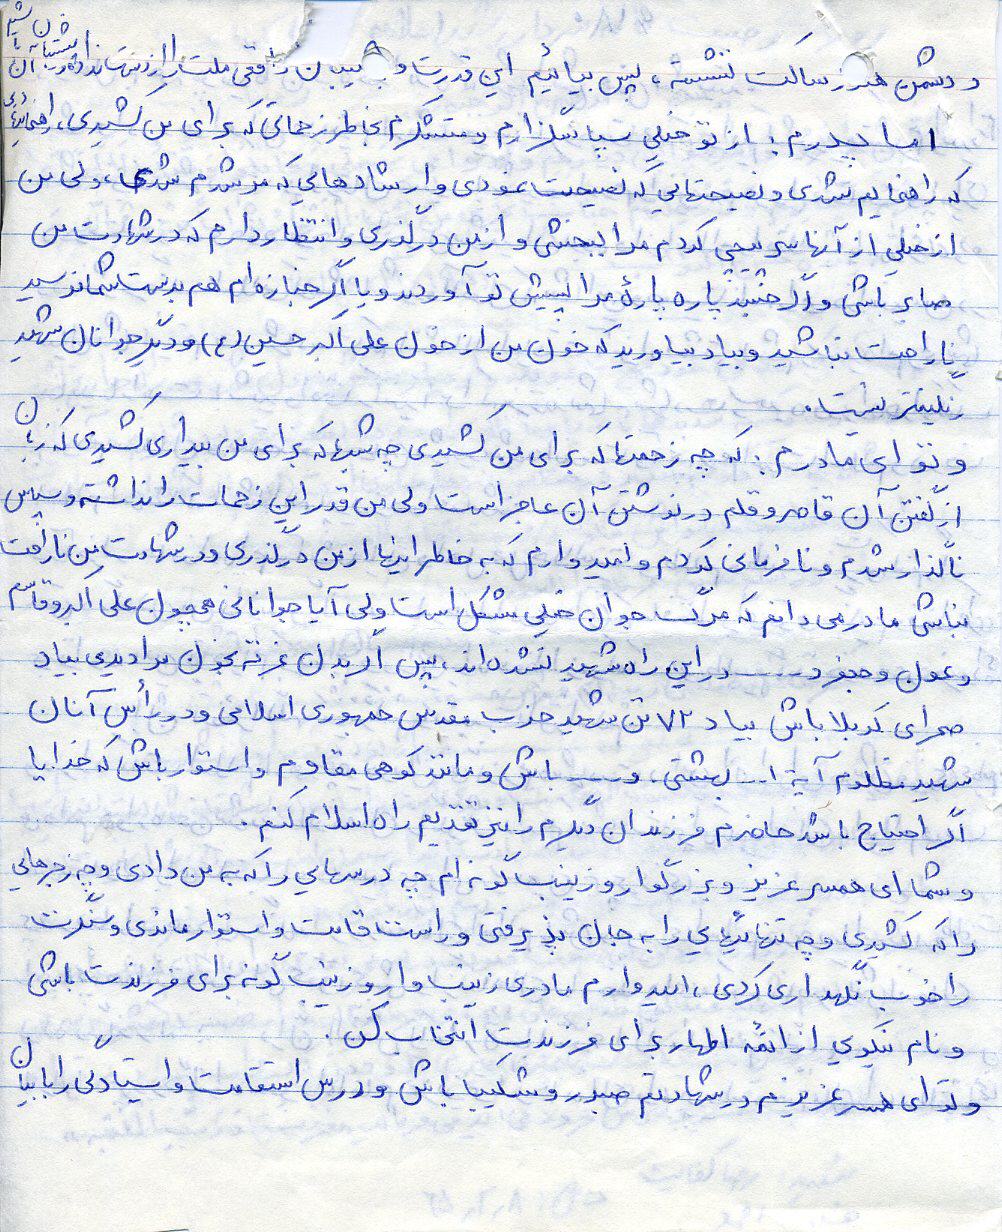 و دشمن هنوز ساکت ننشسته ، پس بیائیم این قدرت و پشتیبان واقعی ملت را از دست ندهید
اما پدرم : از تو خیلی سپاسگزارم و متشکرم بخاطر زحماتی که برای من کشیدی ، راهنمائیهای
که راهنمایم شدی و نصیحتهایی که نصیحت نمودی و ارشادهایی که مرشدم شدی ، ولی من
از خیلی از آنها سرپیچی کردم مرا ببخشی و از من درگذری و انتظار دارم که در شهادت من
صابر باشی و اگر جسد پاره پارهٔ مرا پیش تو آوردند و یا اگر جنازه ام هم بدست شما نرسید
ناراحت نباشید و بیاد بیاورید که خون من از خون علی اکبر حسین (ع) و دیگر جوانان شهید
رنگینتر نیست .
و تو ای مادرم : که چه زحمتها که برای من کشیدی چه شبها که برای من بیداری کشیدی که زبان
از گفتن آن قاصر و قلم در نوشتن آن عاجز است ولی من قدر این زحمات را نداشته و سپاس
ناگذار شدم و نافرمانی کردم و امیدوارم که به خاطر اینها از من درگذری و در شهادت من ناراحت
نباشی مادر می دانم که مرگ جوان خیلی مشکل است ولی آیا جوانانی همچون علی اکبر و قاسم
و عون و جعفر و ...... در این راه شهید نشده اند ، پس اگر بدن غرقه بخون مرا دیدی بیاد
صحرای کربلا باش بیاد ۷۲ تن شهید حزب مقدس جمهوری اسلامی و در رأس آنان
شهید مظلوم آیة ا... بهشتی ، و ..... باش و مانند کوهی مقاوم و استوار باش که خدایا
اگر احتیاج باشد حاضرم فرزندان دیگرم را نیز تقدیم راه اسلام کنم .
و شما ای همسر عزیز و بزرگوار و زینب گونه ام چه درسهایی را که به من دادی و چه زجرهایی
را که کشیدی و چه تنهائیهایی را به جان پذیرفتی و راست قامت و استوار ماندی و سنگرت
را خوب نگهداری کردی ، امیدوارم مادری زینب وار و زینب گونه برای فرزندت باشی
و نام نیکویی از ائمهٔ اطهار برای فرزندت انتخاب کن .
و تو ای همسر عزیزم در شهادتم صبور و شکیبا باش و درس استقامت و ایستادگی را با بیان